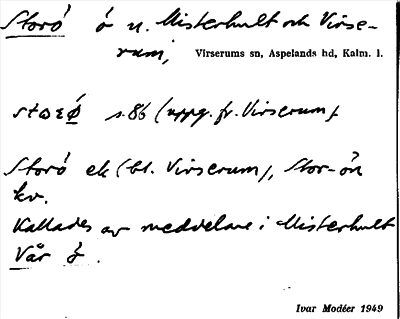 Storö ö u. Misterhult och Virse-
rum; Virserums sn, Aspelands hd, Kalm. l.
s. 86 (uppg. fr. Virserum).
Storö ek (bl. Virserum), Stor-ön
kv.
Kallades av meddelare i Misterhult
Vår ö.
Ivar Modéer 1949